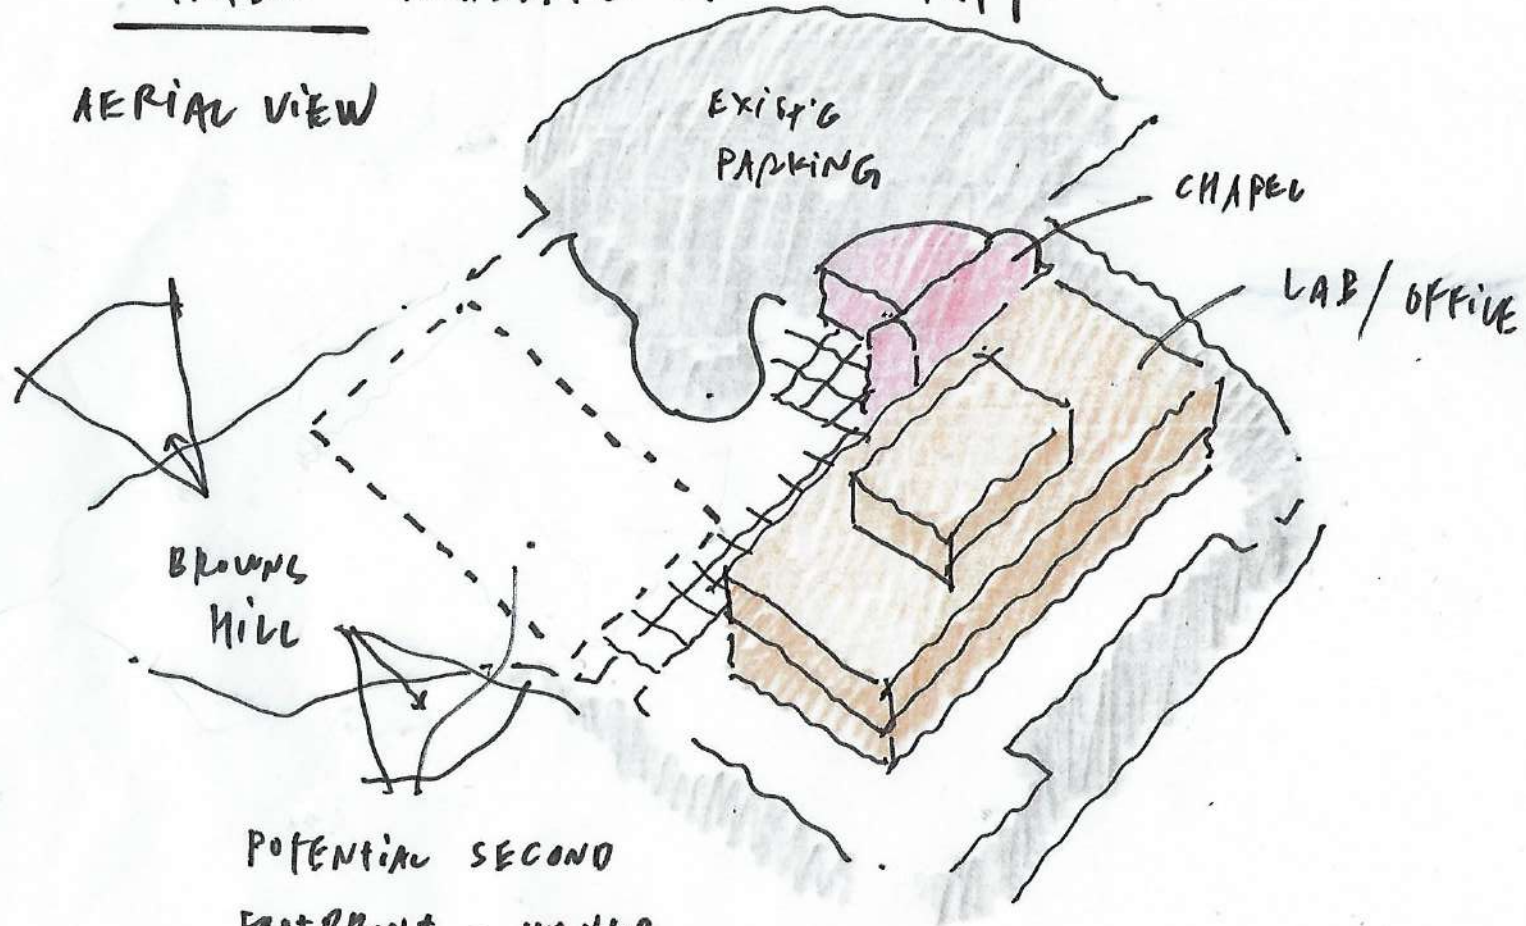 AERIAL VIEW
EXIST'G
PARKING
CHAPEL
LAB/OFFICE
BROWNS
HILL
POTENTIAL SECOND
FOOTPRINT -